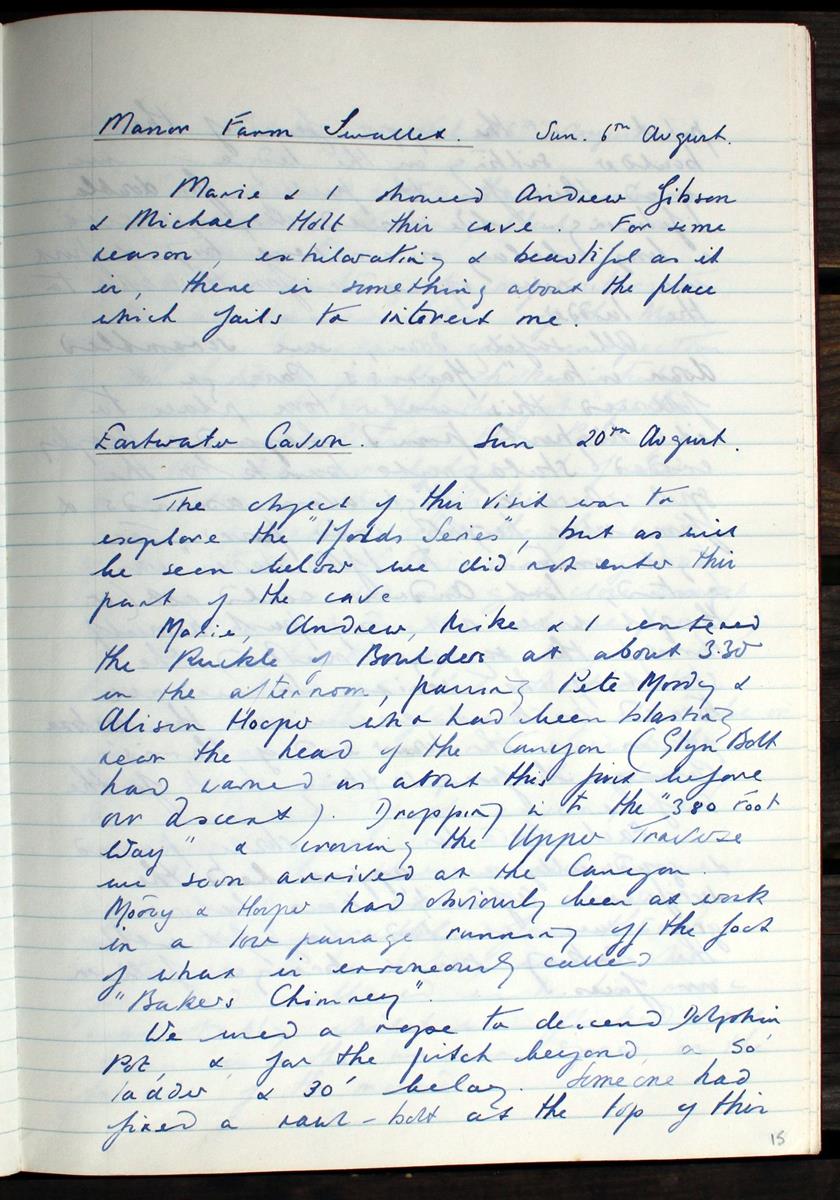 Manor Farm Swallet. Sun. 6th August.
Marie & I showed Andrew Gibson
& Michael Holt this cave. For some
reason, exhilarating & beautiful as it
is, there is something about the place
which fails to interest me.
Eastwater Cavern. Sun 20th August.
The object of this visit was to
explore the "Fords Series", but as will
be seen below we did not enter this
part of the cave
Marie, Andrew, Mike & I entered
the Ruckle of Boulders at about 3.30
in the afternoon, passing Pete Moody &
Alison Hooper who had been blasting
near the head of the Canyon (Glyn Bolt
had warned us about this just before
our descent). Dropping in to the "380 Foot
Way" & crossing the Upper Traverse
we soon arrived at the Canyon.
Moody & Hooper had obviously been at work
in a low passage running off the foot
of what is erroneously called
"Bakers Chimney".
We used a rope to descend Dolphin
Pot, & for the pitch beyond, a 50'
ladder & 30' belay. Someone had
fixed a rawl-bolt at the top of this
15